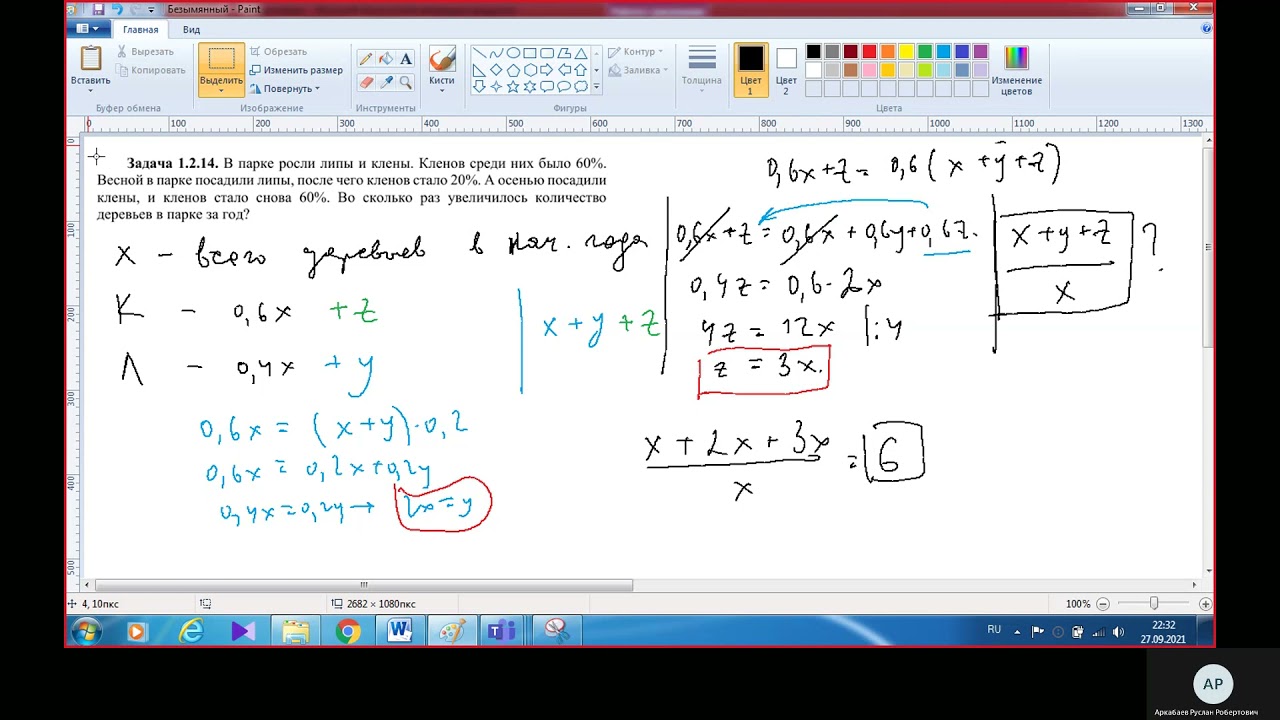 Безымянный - Paint
Главная Вид
Вставить
Вырезать
Копировать
Буфер обмена
Выделить
Обрезать
Изменить размер
Повернуть
Изображение
Инструменты
Кисти
Контур
Заливка
Фигуры
Толщина
Цвет 1
Цвет 2
Изменение цветов
Цвета
0 100 200 300 400 500 600 700 800 900 1000 1100 1200 1300
0
100
200
300
400
500
Задача 1.2.14. В парке росли липы и клены. Кленов среди них было 60%.
Весной в парке посадили липы, после чего кленов стало 20%. А осенью посадили
клены, и кленов стало снова 60%. Во сколько раз увеличилось количество
деревьев в парке за год?
X - всего деревьев в нач. года
К - 0,6x + z
Л - 0,4x + y
x + y + z
0,6x = (x+y)·0,2
0,6x = 0,2x+0,2y
0,4x=0,2y → 2x=y
0,6x+z = 0,6(x+y+z)
0,6x+z = 0,6x + 0,6y+0,6z.
0,4z = 0,6·2x
4z = 12x |:4
z = 3x.
x+y+z
x
?
x + 2x + 3x
x
= 6
4, 10пкс
2682 × 1080пкс
100%
RU
22:32
27.09.2021
AP
Аркабаев Руслан Робертович